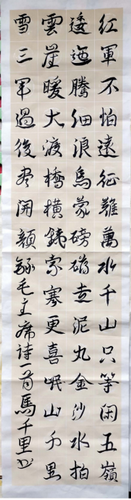 紅軍不怕遠征難萬水千山只等閑五嶺
逶迤騰細浪烏蒙磅礴走泥丸金沙水拍
雲崖暖大渡橋橫鐵索寒更喜岷山千里
雪三軍過後盡開顏錄毛主席詩一首馬千里书